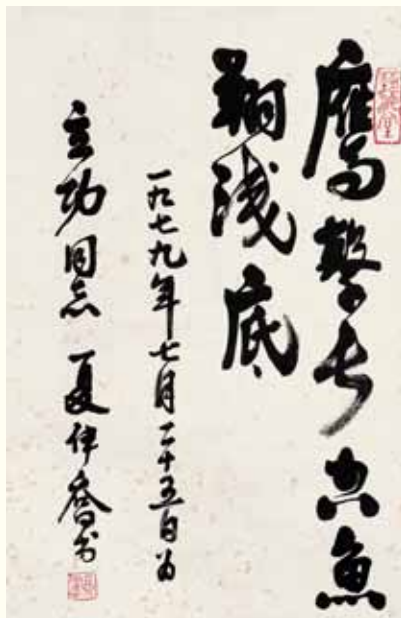 鷹擊长空魚
翔浅底
一九七九年七月二十五日为
立功同志 夏伊乔书